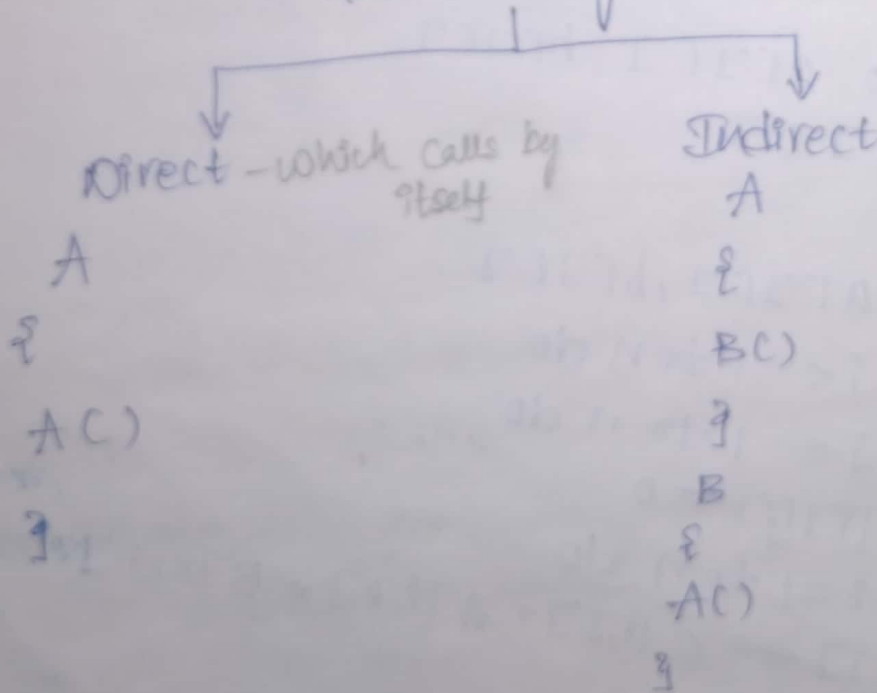 Direct - which calls by
itself
A
{
A()
}
Indirect
A
{
B()
}
B
{
A()
}